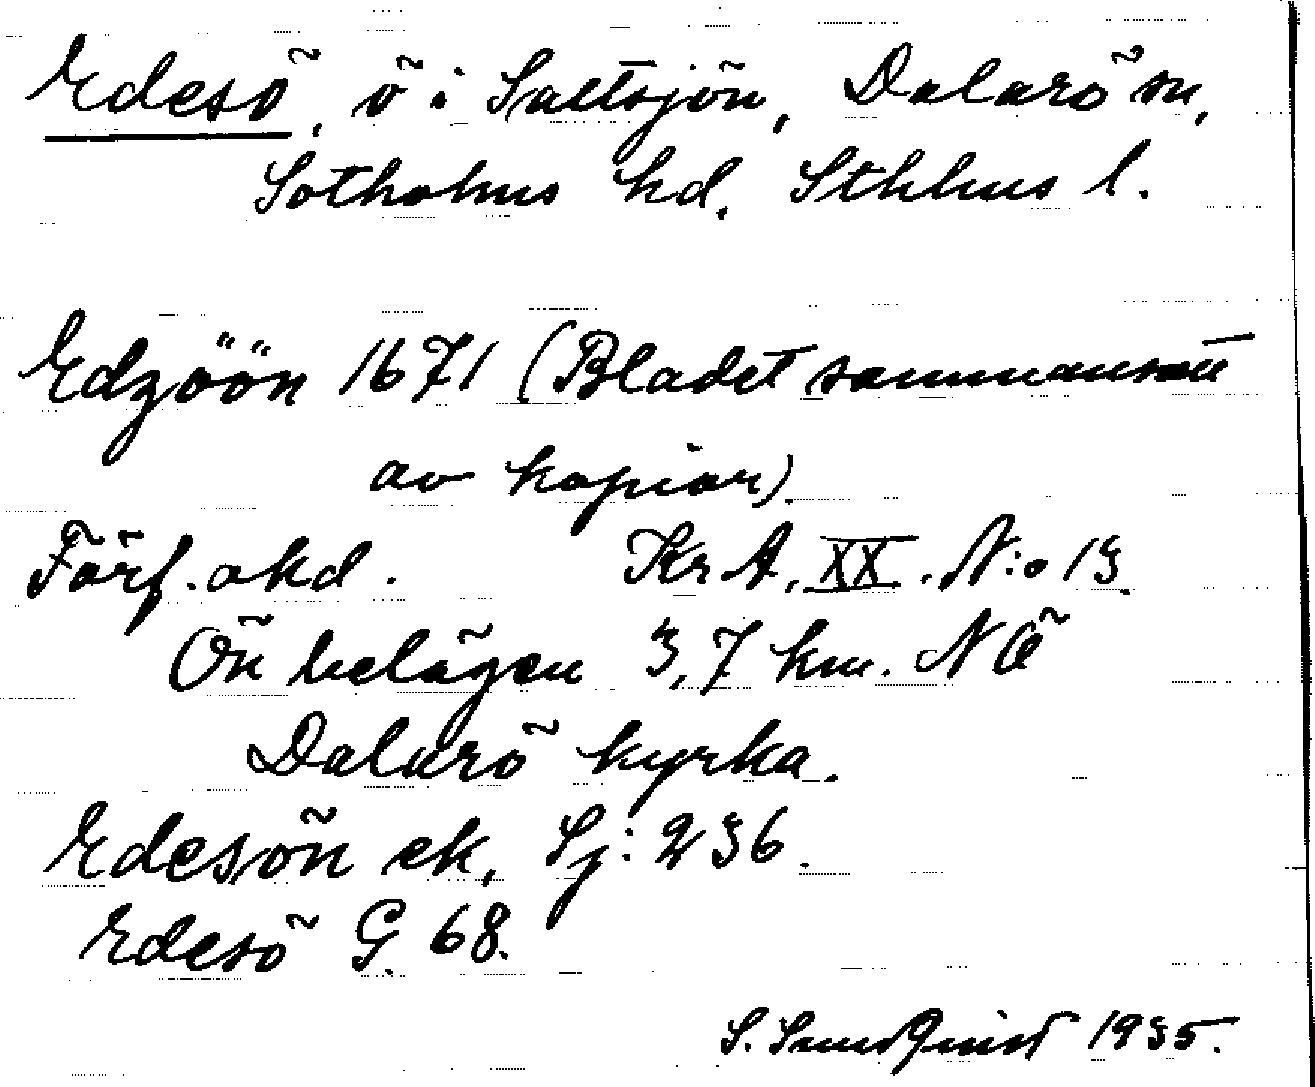 Edesö, ö i Saltsjön, Dalarö sn,
Sotholms hd. Sthlms l.
Edzöön 1671 (Bladet sammansatt
av kopior).
Förf. okd. Kr A. XX. N:o 13.
Ön belägen 3,7 km. NÖ
Dalarö kyrka.
Edesön ek. Sj: 236.
Edesö G. 68.
S. Sundquist 1935.